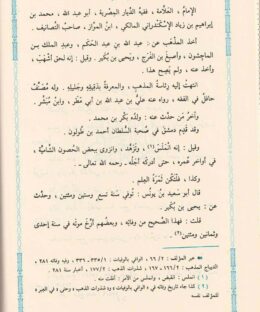 الإمامُ ، العلَّامة ، فقيهُ الدِّيار المِصْرية ، أبو عبد الله ، محمد بن
إبراهيم بن زياد الإسْكَنْدَراني المالكي ، ابنُ الموَّاز ، صاحبُ التَّصانيف .
أخذ المذْهَبَ عن : عبد الله بن عبد الحَكَم ، وعبدِ الملك بن
الماجِشُون ، وأَصْبَغَ بن الفَرَج ، ويَحيى بن بُكَيْر . وقيل : إنه لحق أَشْهَبَ ،
وأخذ عنه ، ولم يَصِحَّ هذا .
انتهتْ إليه رئاسةُ المذهب ، والمعرفةُ بدقيقِهِ وجَليلِهِ . وله مُصَنَّفٌ
حافِلٌ في الفقه ، رواه عنه عليُّ بن عبد الله بن أبي مَطَر ، وابنُ مُبَشِّر .
وآخرُ مَن حدَّث عنه : ولدُه بكرُ بن محمد .
وقد قَدِم دمشقَ في صُحبة السُّلطان أحمد بن طُولون .
وقيل : إنه انْمَلَسَ(١) ، وتَزَهَّد ، وانْزوى ببعض الحُصون الشَّاميَّة ،
في أواخر عُمره ، حتى أدركه أجلُه . رحمه الله تعالى .
وكذا ، فلتكُن ثمرةُ العِلم .
قال أبو سعيد بنُ يُونس : تُوفي سنة تسع وستين ومئتين ، وحدَّث
عن : يحيى بن بُكَيْر .
قلت : فهذا الصَّحيح من وفاته ، وبعضُهم أرَّخ موتَه في سنة إحدى
وثمانين ومئتين(٢) .
الديباج المذهب : ١٦٦/٢ - ١٦٧ ، شذرات الذهب : ١٧٧/٢ ، أخبار سنة ٢٨١ .
(١) انملس : انقبض ، وانملس من الأمر : أفلت منه .